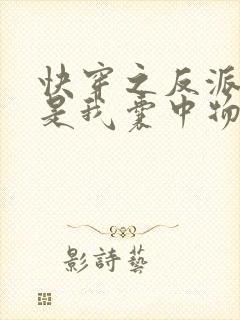 快穿之反派
是我囊中物
影詩藝